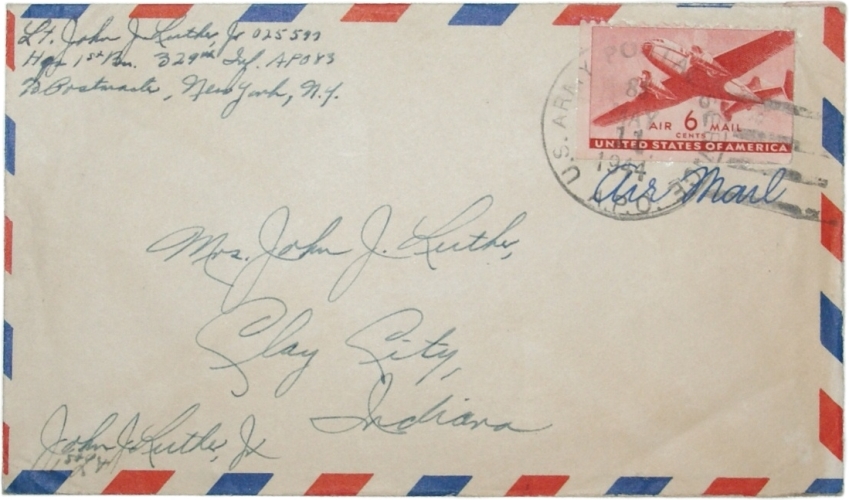 Lt. John J. Luther, Jr 025599
Hq. 1st Bn. 329th Inf. APO 83
℅ Postmaster, New York, N.Y.
U.S. ARMY POSTAL SERVICE
A.P.O.
MAY
11
1944
AIR 6 MAIL
CENTS
UNITED STATES OF AMERICA
Air Mail
Mrs. John J. Luther,
Clay City,
Indiana
John J. Luther, Jr